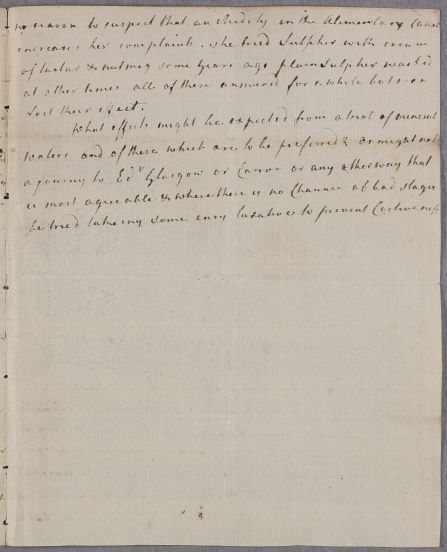 no reason to suspect that an Acidity in the Alimentary Canal
increases her complaints. She tried Sulpher with cream
of tartar & nutmeg some years ago plain Sulpher was tr'd
at other times all of these answered for a while but soon
Lost their effect.
What effects might be expected from a trial of mineral
waters and of these which are to be preferred & or might not
a journey to Edr Glasgow or Carron or any other way that
is most agreeable & where there is no Chance of bad stages
be tried taking some easy laxatives to prevent Costiveness